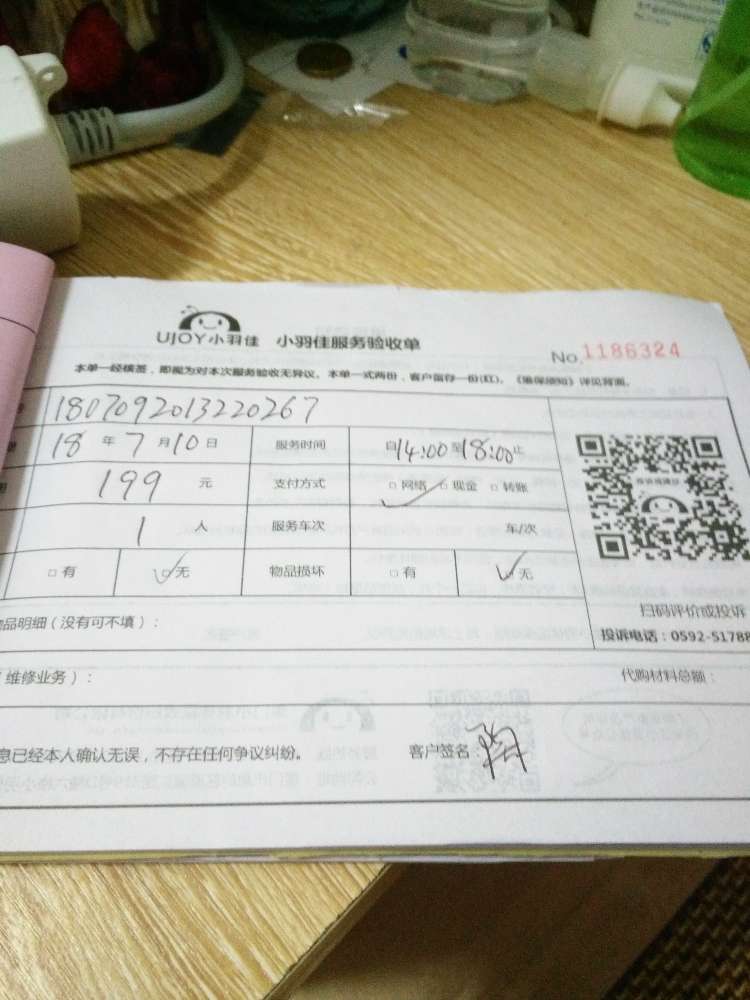 UJOY小羽佳 小羽佳服务验收单
No.1186324
本单一经横签，即视为对本次服务验收无异议。本单一式两份，客户留存一份(红)。
详见背面。
1807092013220267
18年7月10日 服务时间 自14:00至18:00止
199元 支付方式 □网络 □现金 □转账
1人 服务车次 车/次
□有 □无 物品损坏 □有 □无
扫码评价或投诉
品明细（没有可不填）：
投诉电话：0592-51788
维修业务）： 代购材料总额：
息已经本人确认无误，不存在任何争议纠纷。 客户签名：